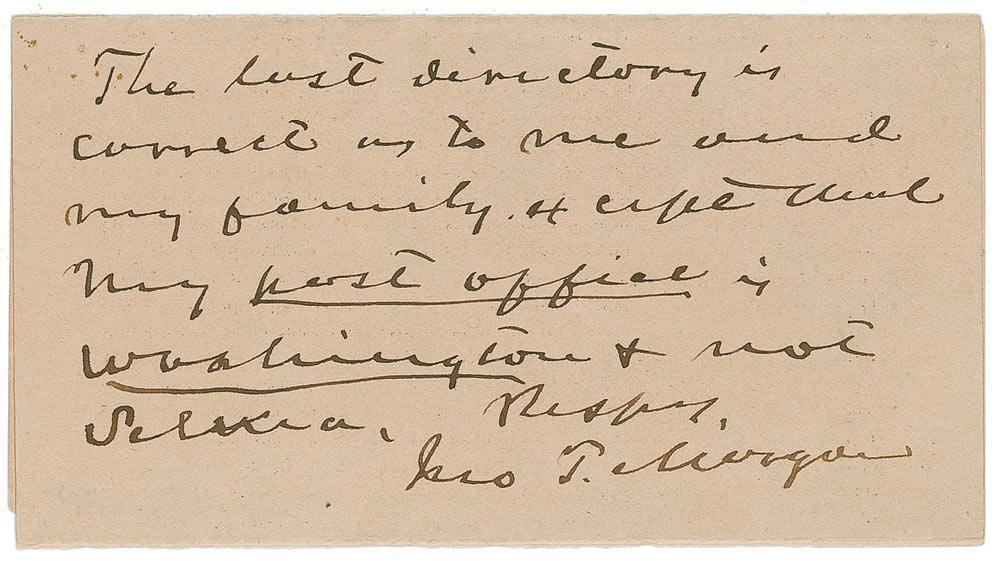 The last directory is
correct as to me and
my family. & except that
my post office is
Washington & not
Selma. Respy,
Jno T. Morgan